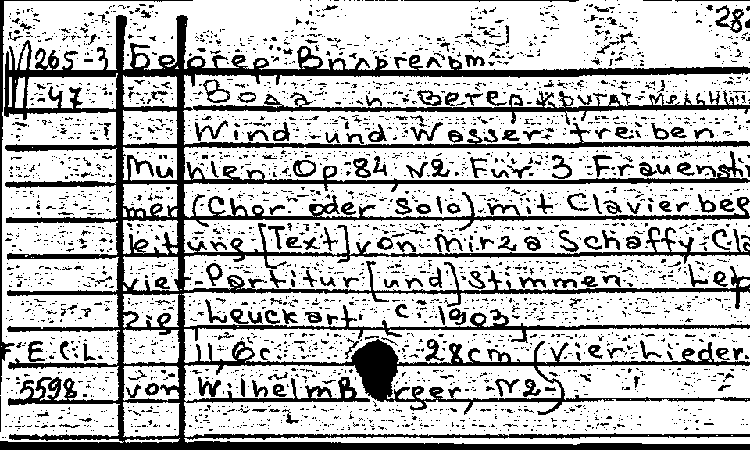 287
М 265-3 Бергер, Вильгельм.
-47 Вода и ветер крутят мельницы
Wind und Wasser treiben
Mühlen. Op. 84, N2. Für 3 Frauensti
mer (Chor oder Solo) mit Clavierbeg
leitung [Text] von Mirza Schaffy. Cla
vier-Partitur [und] Stimmen. Leip
zig, Leuckart, [c. 1903]
F.E.C.L. 11, 6c 28cm (Vier Lieder
5598. von Wilhelm Berger, N2).